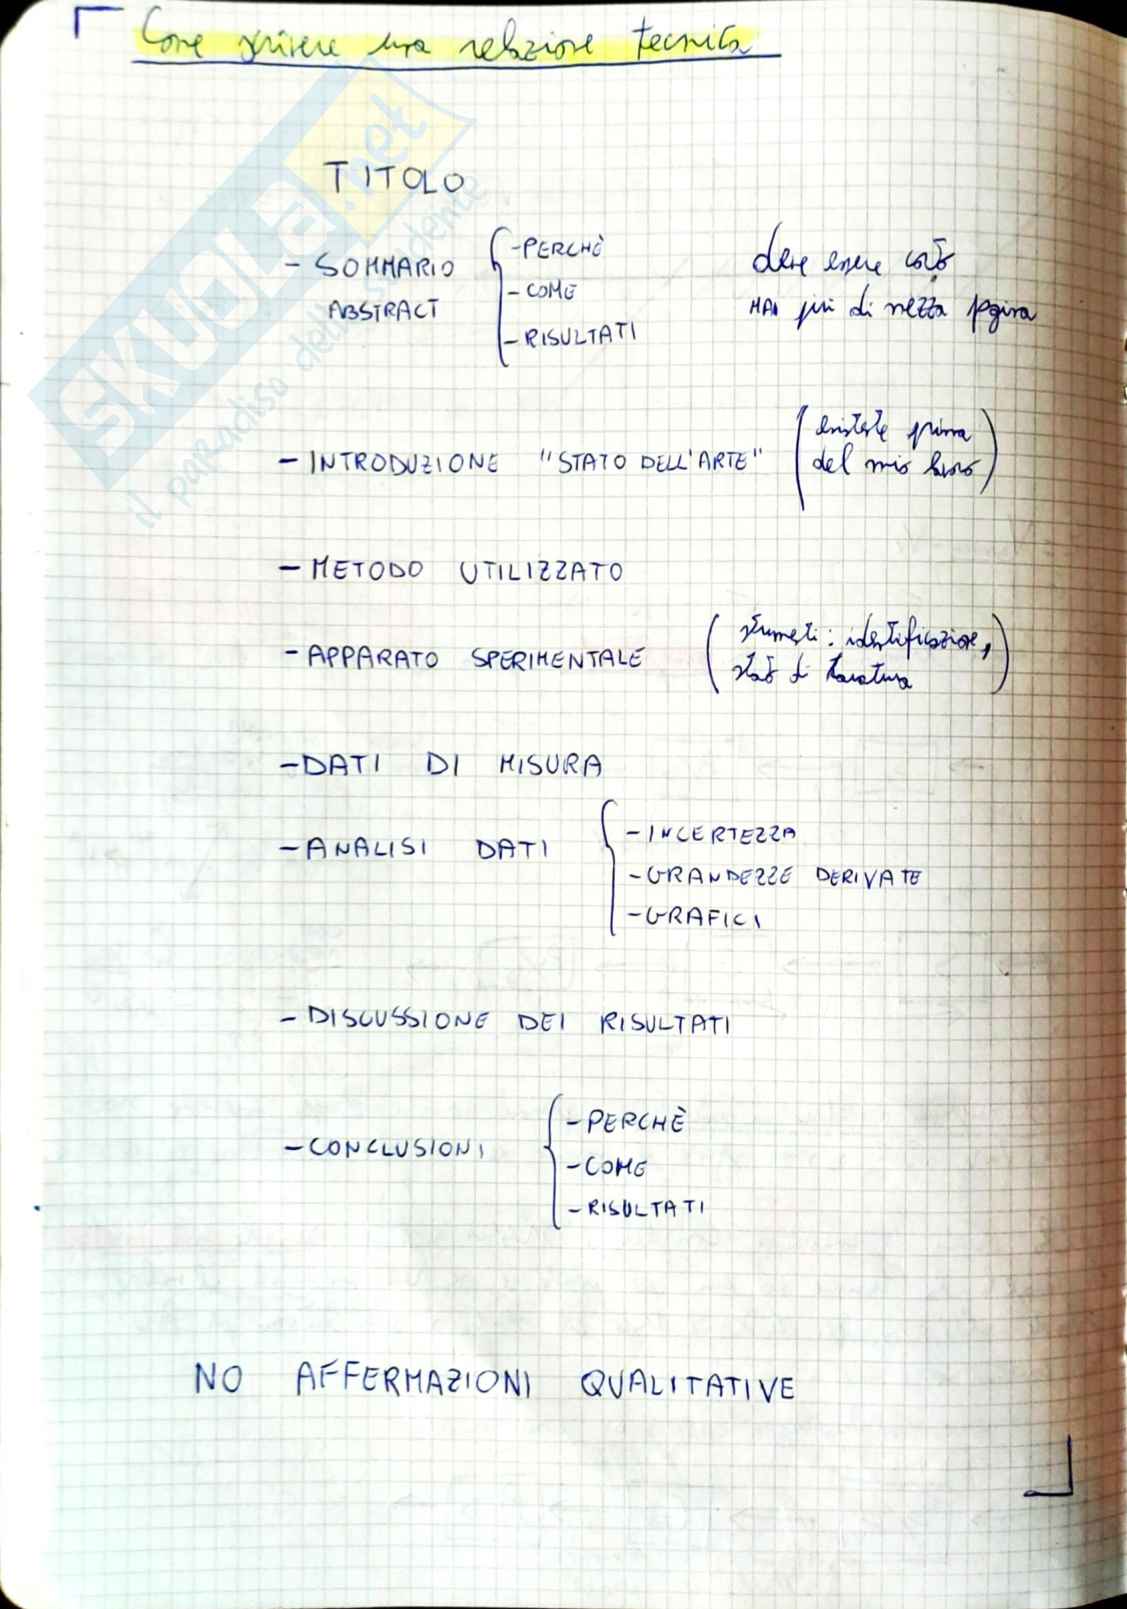 Come scrivere una relazione tecnica
TITOLO
- SOMMARIO
ABSTRACT
- PERCHÈ
- COME
- RISULTATI
deve essere corto
MAI più di mezza pagina
- INTRODUZIONE "STATO DELL'ARTE"
(esistente prima
del mio lavoro)
- METODO UTILIZZATO
- APPARATO SPERIMENTALE
(strumenti: identificazione,
stato di taratura)
- DATI DI MISURA
- ANALISI DATI
- INCERTEZZA
- GRANDEZZE DERIVATE
- GRAFICI
- DISCUSSIONE DEI RISULTATI
- CONCLUSIONI
- PERCHÈ
- COME
- RISULTATI
NO AFFERMAZIONI QUALITATIVE
SKUOLA.net
il paradiso dello studente